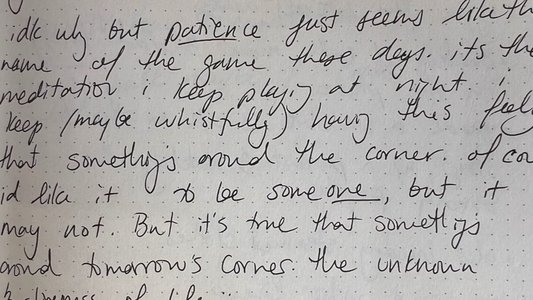 idk why but patience just seems like th
name of the game these days. its the
meditation i keep playing at night. i
keep (maybe whistfully) having this feel
that somethijs around the corner. of cou
id like it to be someone, but it
may not. But it's true that somethijs
around tomorrow's corner. the unknown
of life